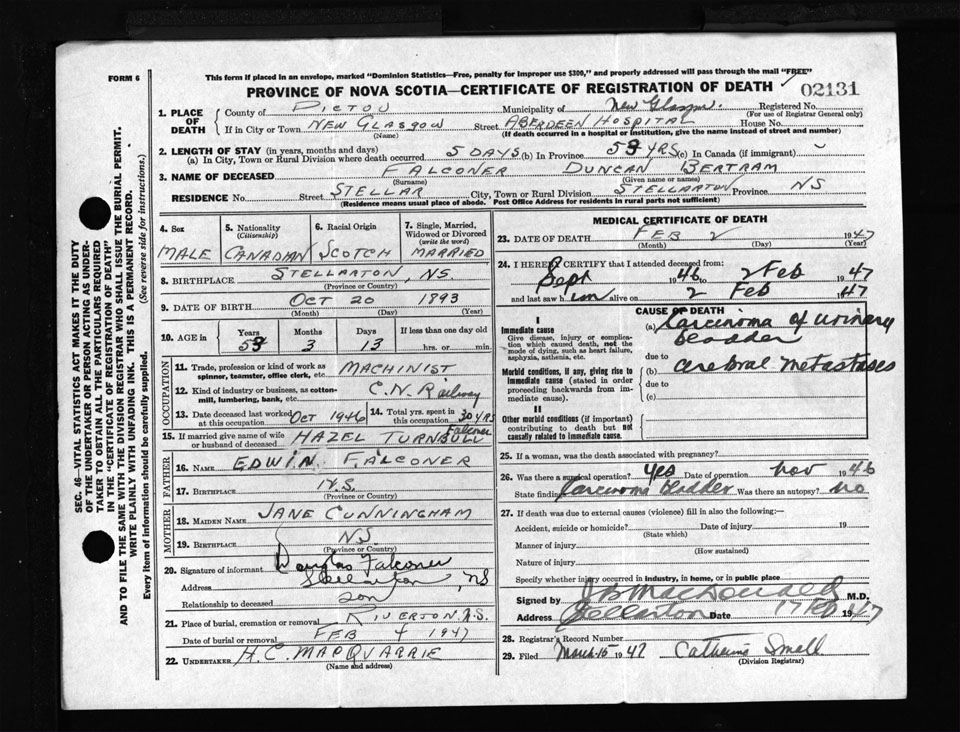 FORM 6
This form if placed in an envelope, marked "Dominion Statistics—Free, penalty for improper use $300," and properly addressed will pass through the mail "FREE"
PROVINCE OF NOVA SCOTIA—CERTIFICATE OF REGISTRATION OF DEATH 02131
1. PLACE OF DEATH
County of PICTOU Municipality of New Glasgow. Registered No.
(For use of Registrar General only)
If in City or Town NEW GLASGOW Street ABERDEEN HOSPITAL House No.
(Name) (If death occurred in a hospital or institution, give the name instead of street and number)
2. LENGTH OF STAY (in years, months and days)
(a) In City, Town or Rural Division where death occurred 5 DAYS (b) In Province 53 YRS (c) In Canada (if immigrant)
3. NAME OF DECEASED FALCONER DUNCAN BERTRAM
(Surname) (Given name or names)
RESIDENCE No. Street STELLAR City, Town or Rural Division STELLARTON Province NS
(Residence means usual place of abode. Post Office Address for residents in rural parts not sufficient)
SEC. 46—VITAL STATISTICS ACT MAKES IT THE DUTY
OF THE UNDERTAKER OR PERSON ACTING AS UNDER-
TAKER TO OBTAIN ALL THE PARTICULARS REQUIRED
IN THE "CERTIFICATE OF REGISTRATION OF DEATH"
AND TO FILE THE SAME WITH THE DIVISION REGISTRAR WHO SHALL ISSUE THE BURIAL PERMIT.
WRITE PLAINLY WITH UNFADING INK. THIS IS A PERMANENT RECORD.
Every item of information should be carefully supplied. (See reverse side for instructions.)
4. Sex
MALE
5. Nationality
(Citizenship)
CANADIAN
6. Racial Origin
SCOTCH
7. Single, Married, Widowed or Divorced
(write the word)
MARRIED
8. BIRTHPLACE STELLARTON, NS.
(Province or Country)
9. DATE OF BIRTH OCT 20 1893
(Month) (Day) (Year)
10. AGE in Years Months Days If less than one day old
53 3 13 hrs. or min.
OCCUPATION
11. Trade, profession or kind of work as spinner, teamster, office clerk, etc. MACHINIST
12. Kind of industry or business, as cotton-mill, lumbering, bank, etc. C.N. Railway
13. Date deceased last worked at this occupation Oct 1946
14. Total yrs. spent in this occupation 30 YRS
15. If married give name of wife or husband of deceased HAZEL TURNBULL Falconer
FATHER
16. NAME EDWIN FALCONER
17. BIRTHPLACE N.S.
(Province or Country)
MOTHER
18. MAIDEN NAME JANE CUNNINGHAM
19. BIRTHPLACE NS
(Province or Country)
20. Signature of informant Douglas Falconer
Address Stellarton, NS
Relationship to deceased son
21. Place of burial, cremation or removal RIVERTON N.S.
Date of burial or removal FEB 4 1947
22. UNDERTAKER H.C. MACQUARRIE
(Name and address)
MEDICAL CERTIFICATE OF DEATH
23. DATE OF DEATH FEB 2 1947
(Month) (Day) (Year)
24. I HEREBY CERTIFY that I attended deceased from:
Sept 1946 to 2 Feb 1947
and last saw him alive on 2 Feb 1947
CAUSE OF DEATH
I
Immediate cause
Give disease, injury or complication which caused death, not the mode of dying, such as heart failure, asphyxia, asthenia, etc.
(a) Carcinoma of urinary bladder
due to
Morbid conditions, if any, giving rise to immediate cause (stated in order proceeding backwards from immediate cause).
(b) cerebral metastases
due to
(c)
II
Other morbid conditions (if important) contributing to death but not causally related to immediate cause.
25. If a woman, was the death associated with pregnancy?
26. Was there a surgical operation? Yes Date of operation Nov 1946
State findings Carcinoma Bladder Was there an autopsy? No
27. If death was due to external causes (violence) fill in also the following:—
Accident, suicide or homicide? Date of injury 19
(State which)
Manner of injury
(How sustained)
Nature of injury
Specify whether injury occurred in industry, in home, or in public place
Signed by MacDonald M.D.
Address Stellarton Date 17 Feb 1947
28. Registrar's Record Number
29. Filed March 15 1947 Catherine Smell
(Division Registrar)